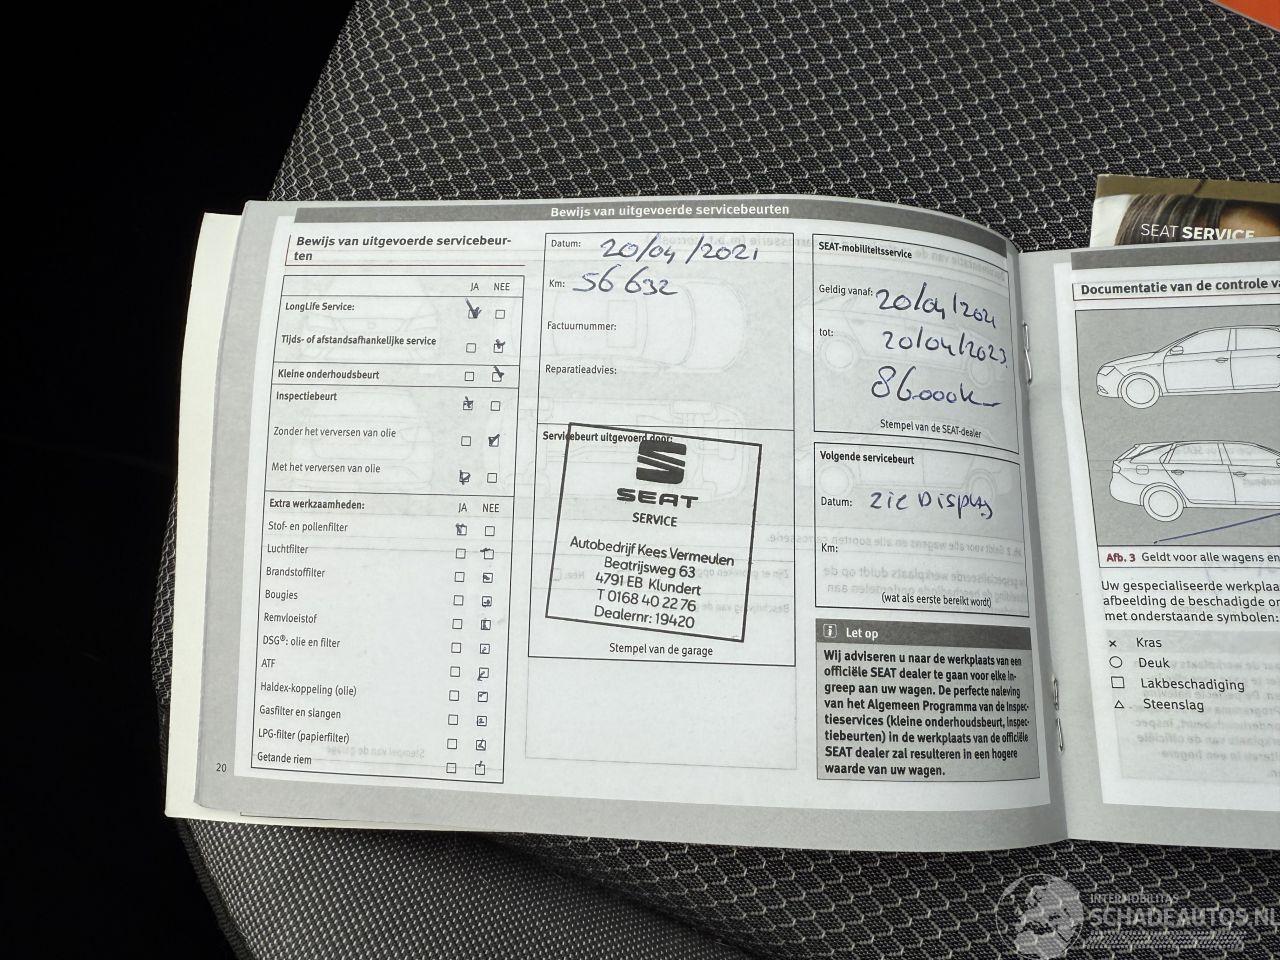 Bewijs van uitgevoerde servicebeurten
Bewijs van uitgevoerde servicebeur-
ten
JA NEE
LongLife Service:
Tijds- of afstandsafhankelijke service
Kleine onderhoudsbeurt
Inspectiebeurt
Zonder het verversen van olie
Met het verversen van olie
Extra werkzaamheden: JA NEE
Stof- en pollenfilter
Luchtfilter
Brandstoffilter
Bougies
Remvloeistof
DSG®: olie en filter
ATF
Haldex-koppeling (olie)
Gasfilter en slangen
LPG-filter (papierfilter)
Getande riem
20
Datum: 20/04/2021
Km: 56 632
Factuurnummer:
Reparatieadvies:
Servicebeurt uitgevoerd door:
SEAT
SERVICE
Autobedrijf Kees Vermeulen
Beatrijsweg 63
4791 EB Klundert
T 0168 40 22 76
Dealernr: 19420
Stempel van de garage
SEAT-mobiliteitsservice
Geldig vanaf: 20/04/2021
tot: 20/04/2023
86.000k
Stempel van de SEAT-dealer
Volgende servicebeurt
Datum: zie Display
Km:
(wat als eerste bereikt wordt)
i Let op
Wij adviseren u naar de werkplaats van een
officiële SEAT dealer te gaan voor elke in-
greep aan uw wagen. De perfecte naleving
van het Algemeen Programma van de Inspec-
tieservices (kleine onderhoudsbeurt, Inspec-
tiebeurten) in de werkplaats van de officiële
SEAT dealer zal resulteren in een hogere
waarde van uw wagen.
SEAT SERVICE
Documentatie van de controle va
Afb. 3 Geldt voor alle wagens en
Uw gespecialiseerde werkplaa
afbeelding de beschadigde on
met onderstaande symbolen:
× Kras
○ Deuk
□ Lakbeschadiging
△ Steenslag
INTERMOBILITAS
SCHADEAUTOS.NL